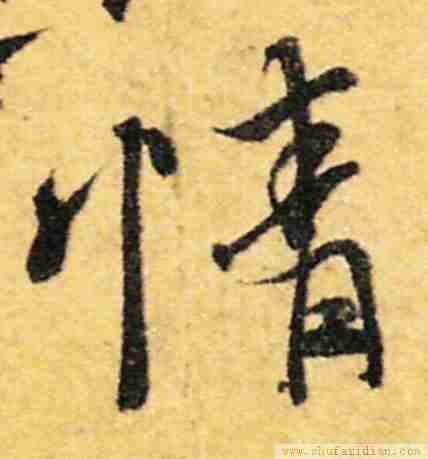 情
www.shufazidian.com